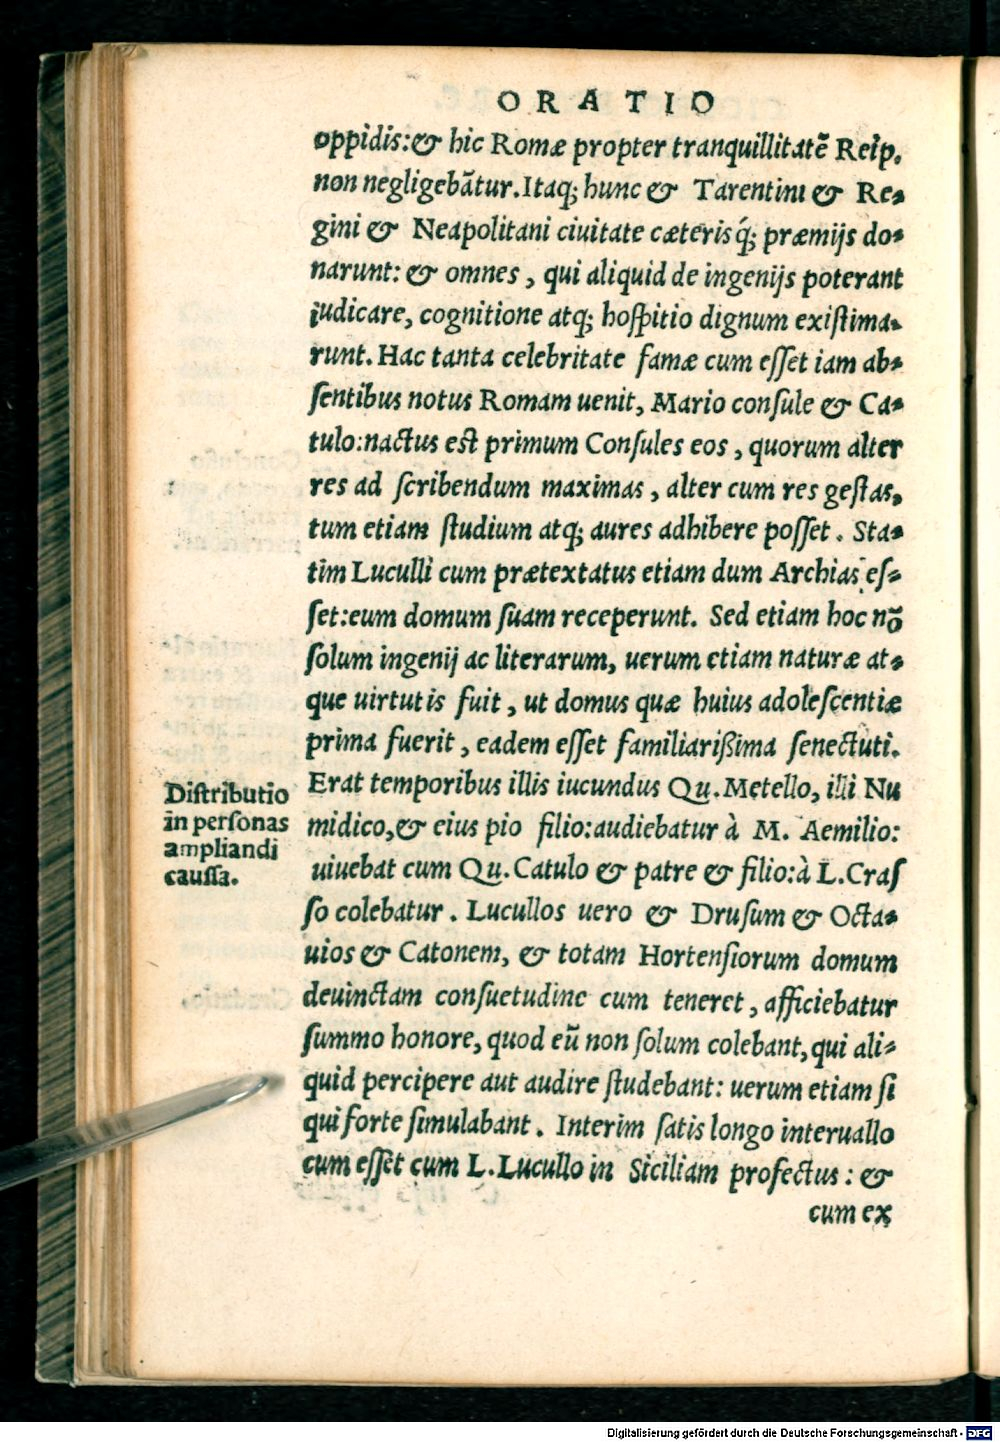 ORATIO
oppidis:& hic Romæ propter tranquillitatẽ Reip.
non negligebãtur.Itaq; hunc & Tarentini & Re-
gini & Neapolitani ciuitate cæterisq́; præmijs do-
narunt: & omnes, qui aliquid de ingenijs poterant
iudicare, cognitione atq; hoſpitio dignum exiſtima-
runt. Hac tanta celebritate famæ cum eſſet iam ab-
ſentibus notus Romam uenit, Mario conſule & Ca-
tulo:nactus eſt primum Conſules eos, quorum alter
res ad ſcribendum maximas, alter cum res geſtas,
tum etiam ſtudium atq; aures adhibere poſſet. Sta-
tim Luculli cum prætextatus etiam dum Archias eſ-
ſet:eum domum ſuam receperunt. Sed etiam hoc nõ
ſolum ingenij ac literarum, uerum etiam naturæ at-
que uirtutis fuit, ut domus quæ huius adoleſcentiæ
prima fuerit, eadem eſſet familiarißima ſenectuti.
Erat temporibus illis iucundus Qu. Metello, illi Nu
midico,& eius pio filio:audiebatur à M. Aemilio:
uiuebat cum Qu. Catulo & patre & filio:à L.Craſ
ſo colebatur. Lucullos uero & Druſum & Octa-
uios & Catonem, & totam Hortenſiorum domum
deuinctam conſuetudine cum teneret, afficiebatur
ſummo honore, quod eũ non ſolum colebant, qui ali-
quid percipere aut audire ſtudebant: uerum etiam ſi
qui forte ſimulabant. Interim ſatis longo interuallo
cum eſſet cum L.Lucullo in Siciliam profectus: &
cum ex
Diſtributio
in perſonas
ampliandi
cauſſa.
Digitalisierung gefördert durch die Deutsche Forschungsgemeinschaft - DFG